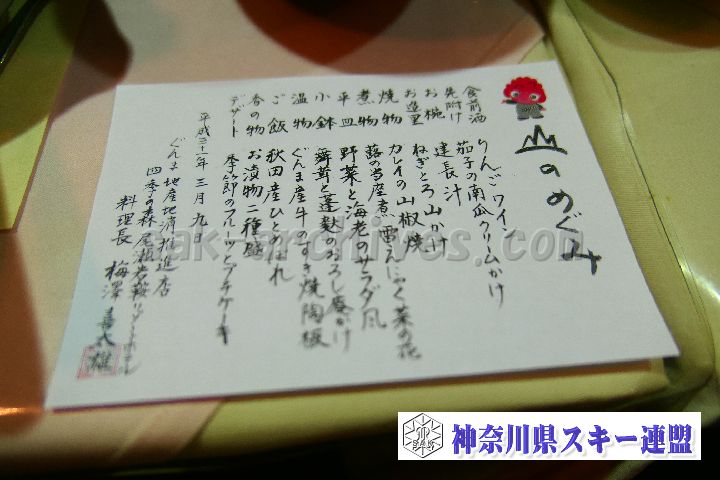 山のめぐみ
食前酒 りんごワイン
先附け 茄子の南瓜クリームかけ
お椀 建長汁
お造里 ねぎとろ山かけ
焼物 カレイの山椒焼
煮物 蕗の当座煮 雷こんにゃく 菜の花
平皿 野菜と海老のサラダ風
小鉢 舞茸と蓬麩のおろし庵かけ
温物 ぐんま産牛のすき焼陶板
ご飯 秋田産ひとめぼれ
香の物 お漬物二種盛
デザート 季節のフルーツとプチケーキ
平成三十一年 三月九日
ぐんま地産地消推進店
四季の森 尾瀬岩鞍リゾートホテル
料理長 梅澤
神奈川県スキー連盟